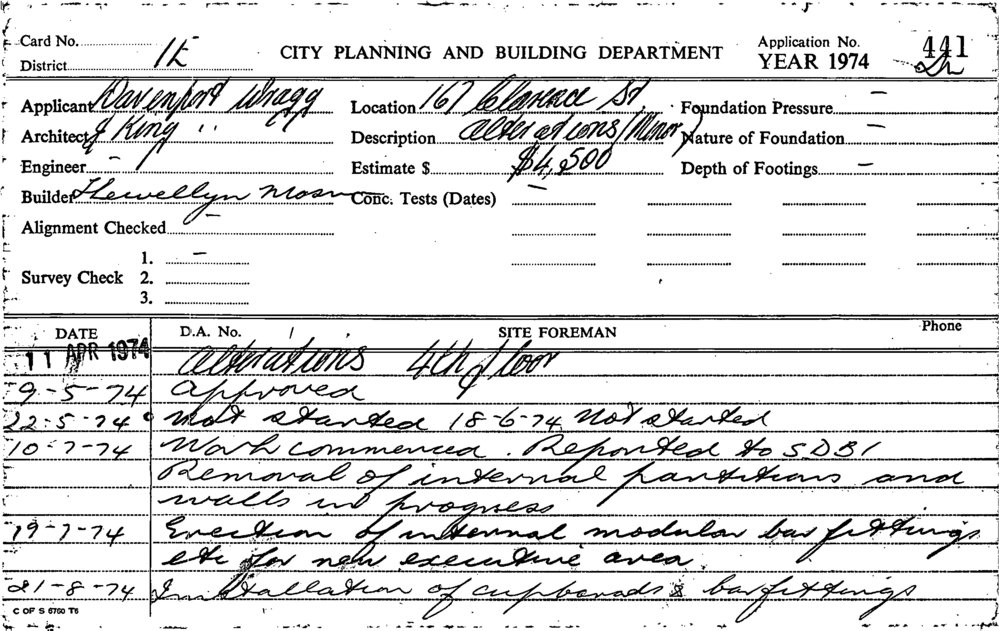 Card No.
CITY PLANNING AND BUILDING DEPARTMENT
Application No. 441
District 1E
YEAR 1974
Applicant Davenport Wragg
Location 167 Clarence St.
Foundation Pressure –
Architect J King "
Description Alterations (Minor)
Nature of Foundation –
Engineer –
Estimate $ $4,500
Depth of Footings –
Builder Llewellyn Mosman
Conc. Tests (Dates) –
Alignment Checked –
1. –
Survey Check 2.
3.
DATE D.A. No. SITE FOREMAN Phone
11 APR 1974 Alterations 4th floor
9-5-74 Approved
22-5-74 Not started 18-6-74 Not started
10-7-74 Work commenced. Reported to S.D.B.I
Removal of internal partitions and
walls in progress
19-7-74 Erection of internal modular bar fittings
etc for new executive area
21-8-74 Installation of cupboards & bar fittings
C OF S 6760 T6